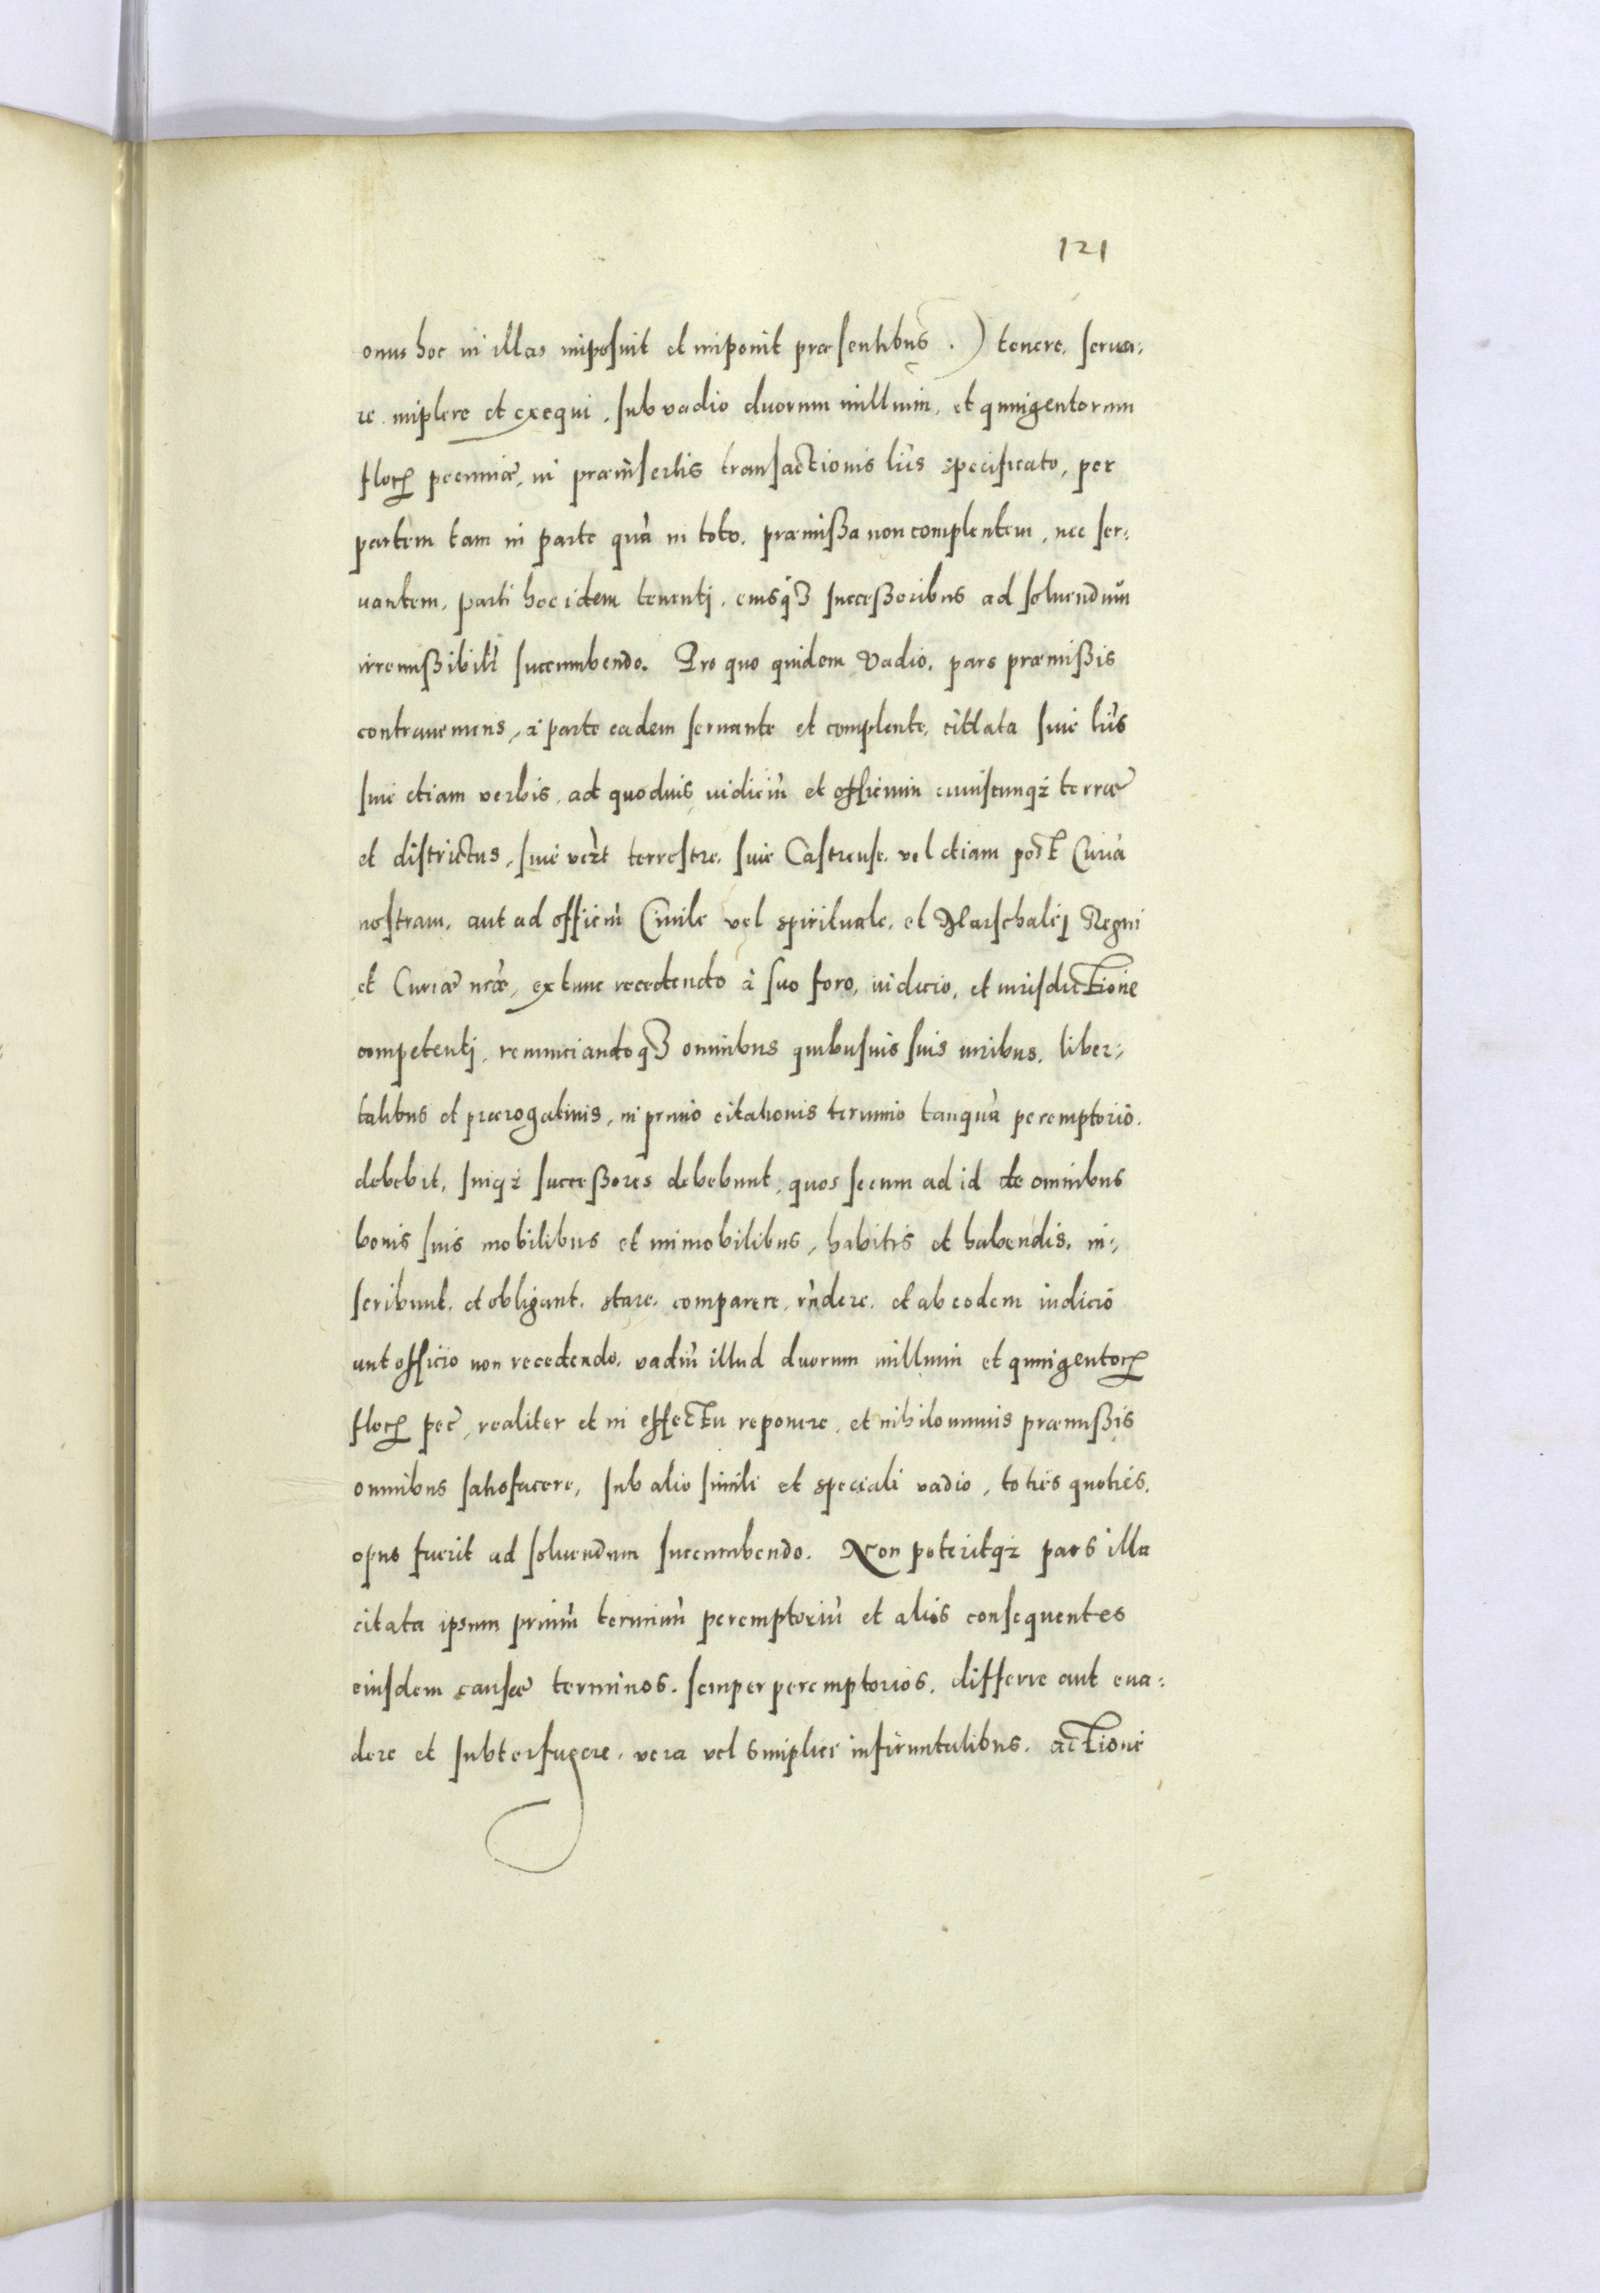 121
onus hoc in illas imposuit et imponit præsentibus .) tenere, serua:
re implere et exequi, sub vadio duorum millium, et quingentorum
floꝝ pecuniæ, in præinsertis transactionis lr̃is specificato, per
partem tam in parte quã in toto, præmißa non complentem, nec ser:
uantem, parti hoc idem tenenti, eiusqȝ succeßoribus ad soluendũ
irremißibilr̃ succumbendo. Pro quo quidem Vadio, pars præmißis
contraueniens, à parte eadem seruante et complente, citata siue lr̃is
siue etiam verbis, ad quoduis iudiciũ et officium cuiuscunqȝ terræ
et districtus, siue terrestre, siue Castrense, vel etiam post Curiã
nostram, aut ad officiũ Ciuile vel spirituale, et Marschalcj Regni
et Curiæ nr̃æ, ex tunc recedendo à suo foro, iudicio, et iurisdictione
competentj, renunciandoqȝ omnibus quibusuis suis iuribus, liber:
tatibus et prærogatiuis, in primo citationis termino tanquã peremptorio.
debebit, suiqȝ succeßores debebunt, quos secum ad id de omnibus
bonis suis mobilibus et immobilibus, habitis et habendis, in:
scribunt, et obligant, stare, comparere, rñdere, et ab eodem iudicio
aut officio non recedendo, vadiũ illud duorum millium et quingentoꝝ
floꝝ pec̃, realiter et in effectu reponere, et nihilominus præmißis
omnibus satisfacere, sub alio simili et speciali vadio, toties quoties,
opus fuerit ad soluendum succumbendo. Non poteritqȝ pars illa
citata ipsum primũ terminũ peremptoriũ et alios consequentes
eiusdem causæ terminos, semper peremptorios, differre aut eua:
dere et subterfugere, vera vel simplici infirmitatibus, actione